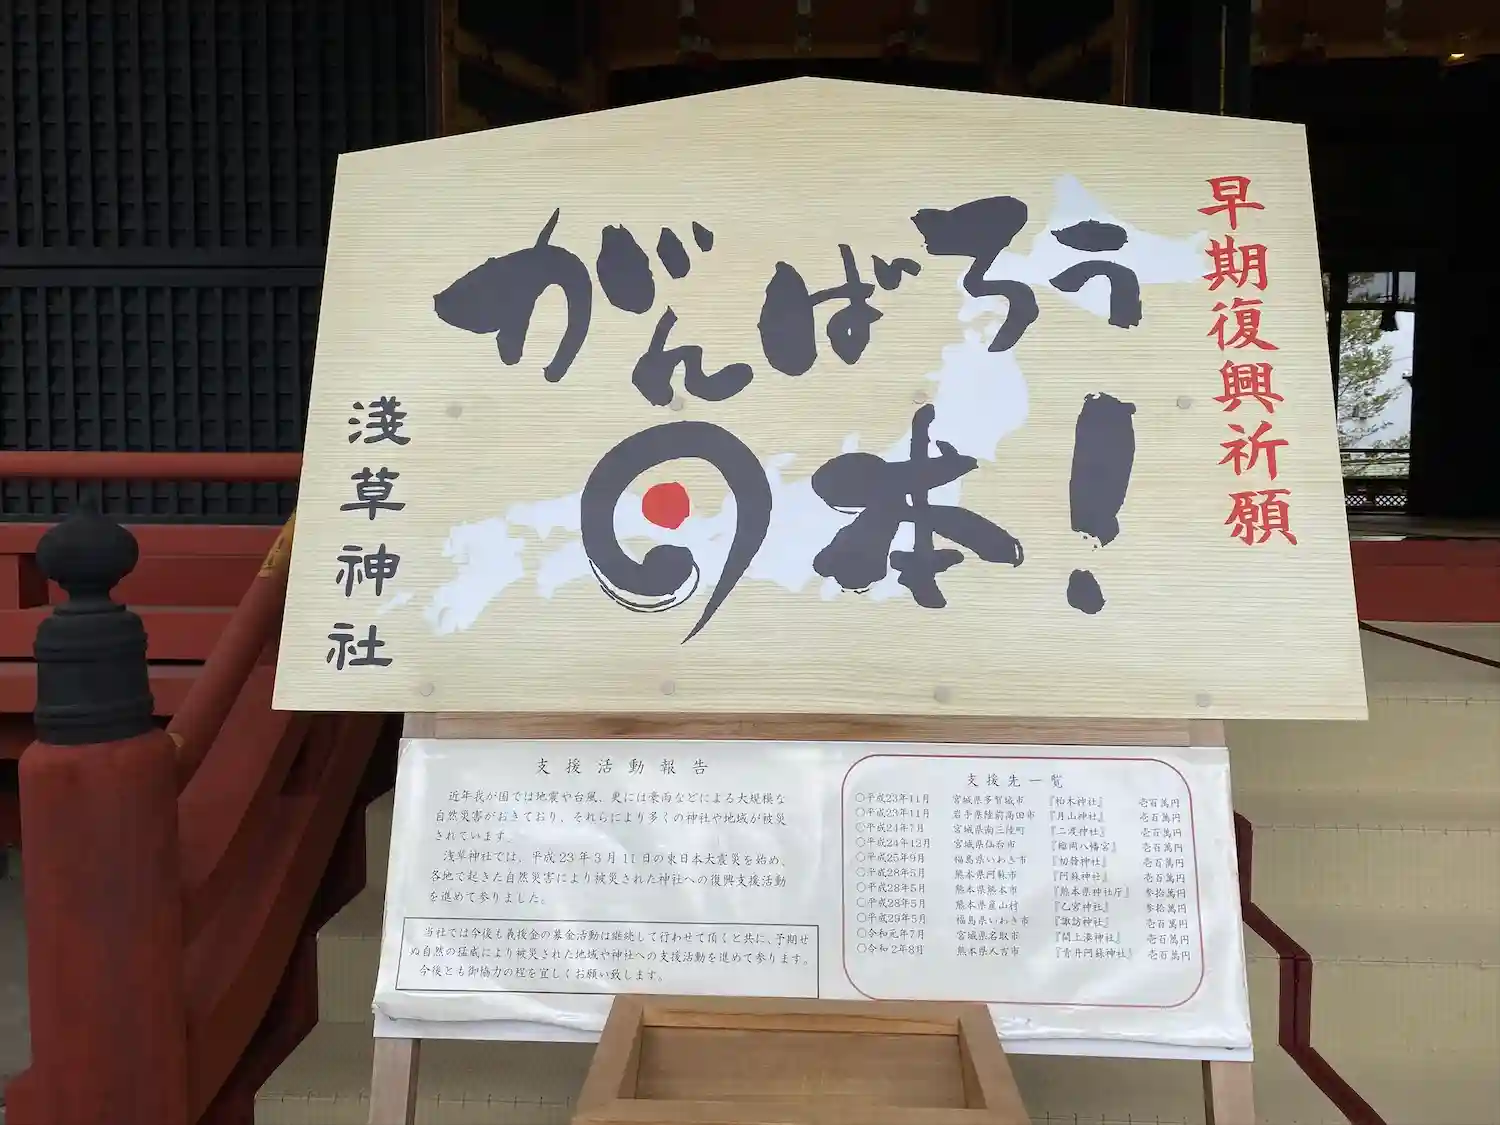 早期復興祈願
がんばろう
日本!
浅草神社
支援活動報告
近年我が国では地震や台風、更には豪雨などによる大規模な
自然災害がおきており、それらにより多くの神社や地域が被災
されています。
浅草神社では、平成23年3月11日の東日本大震災を始め、
各地で起きた自然災害により被災された神社への復興支援活動
を進めて参りました。
当社では今後も義援金の募金活動は継続して行わせて頂くと共に、予期せ
ぬ自然の猛威により被災された地域や神社への支援活動を進めて参ります。
今後とも御協力の程を宜しくお願い致します。
支援先一覧
○平成23年11月 宮城県多賀城市 『柏木神社』 壱百萬円
○平成23年11月 岩手県陸前高田市 『月山神社』 壱百萬円
○平成24年7月 宮城県南三陸町 『二渡神社』 壱百萬円
○平成24年12月 宮城県仙台市 『榴岡八幡宮』 壱百萬円
○平成25年9月 福島県いわき市 『神社』 壱百萬円
○平成28年5月 熊本県阿蘇市 『阿蘇神社』 壱百萬円
○平成28年5月 熊本県熊本市 『熊本県神社庁』 参拾萬円
○平成28年5月 熊本県産山村 『乙宮神社』 参拾萬円
○平成29年5月 福島県いわき市 『諏訪神社』 壱百萬円
○令和元年7月 宮城県名取市 『閖上湊神社』 壱百萬円
○令和2年8月 熊本県人吉市 『青井阿蘇神社』 壱百萬円